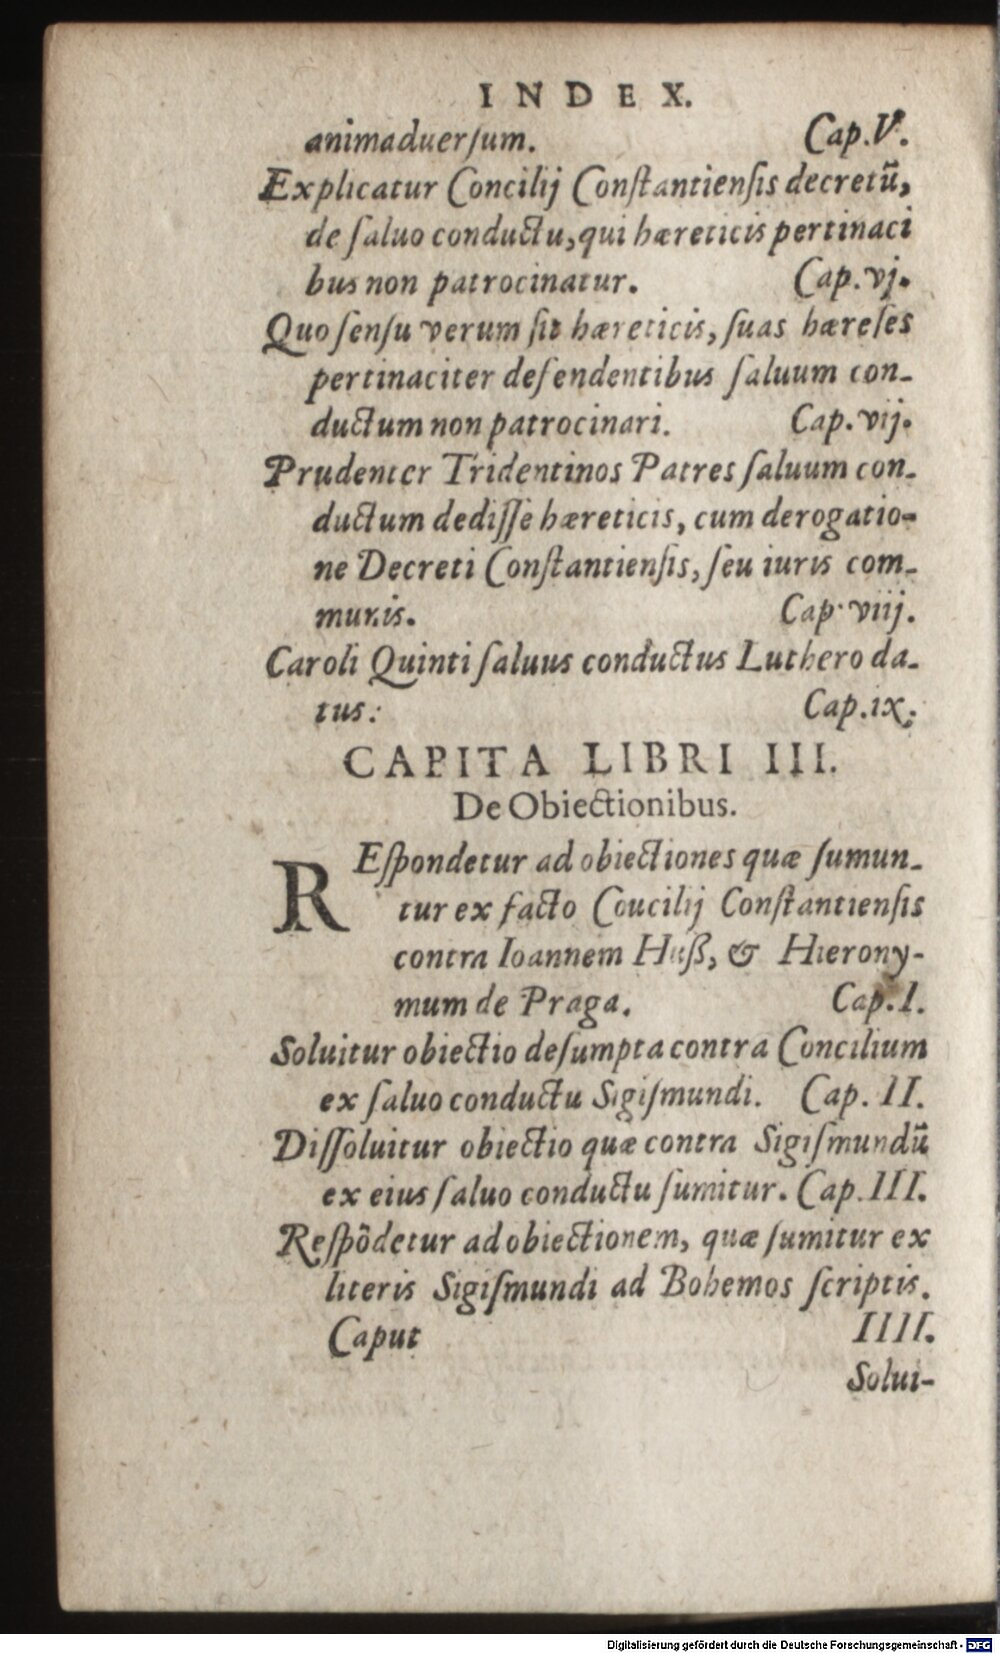 INDEX.
animaduerſum. Cap.V.
Explicatur Concilij Conſtantienſis decretū,
de ſaluo conductu, qui hæreticis pertinaci
bus non patrocinatur. Cap. vj.
Quo ſenſu verum ſit hæreticis, ſuas hæreſes
pertinaciter defendentibus ſaluum con-
ductum non patrocinari. Cap. vij.
Prudenter Tridentinos Patres ſaluum con-
ductum dediſſe hæreticis, cum derogatio-
ne Decreti Conſtantienſis, ſeu iuris com-
munis. Cap. viij.
Caroli Quinti ſaluus conductus Luthero da-
tus: Cap. ix.
CAPITA LIBRI III.
De Obiectionibus.
REſpondetur ad obiectiones quæ ſumun-
tur ex facto Coucilij Conſtantienſis
contra Ioannem Huß, & Hierony-
mum de Praga. Cap. I.
Soluitur obiectio deſumpta contra Concilium
ex ſaluo conductu Sigiſmundi. Cap. II.
Diſſoluitur obiectio quæ contra Sigiſmundū
ex eius ſaluo conductu ſumitur. Cap. III.
Reſpõdetur ad obiectionem, quæ ſumitur ex
literis Sigiſmundi ad Bohemos ſcriptis.
Caput IIII.
Solui-
Digitalisierung gefördert durch die Deutsche Forschungsgemeinschaft - DFG